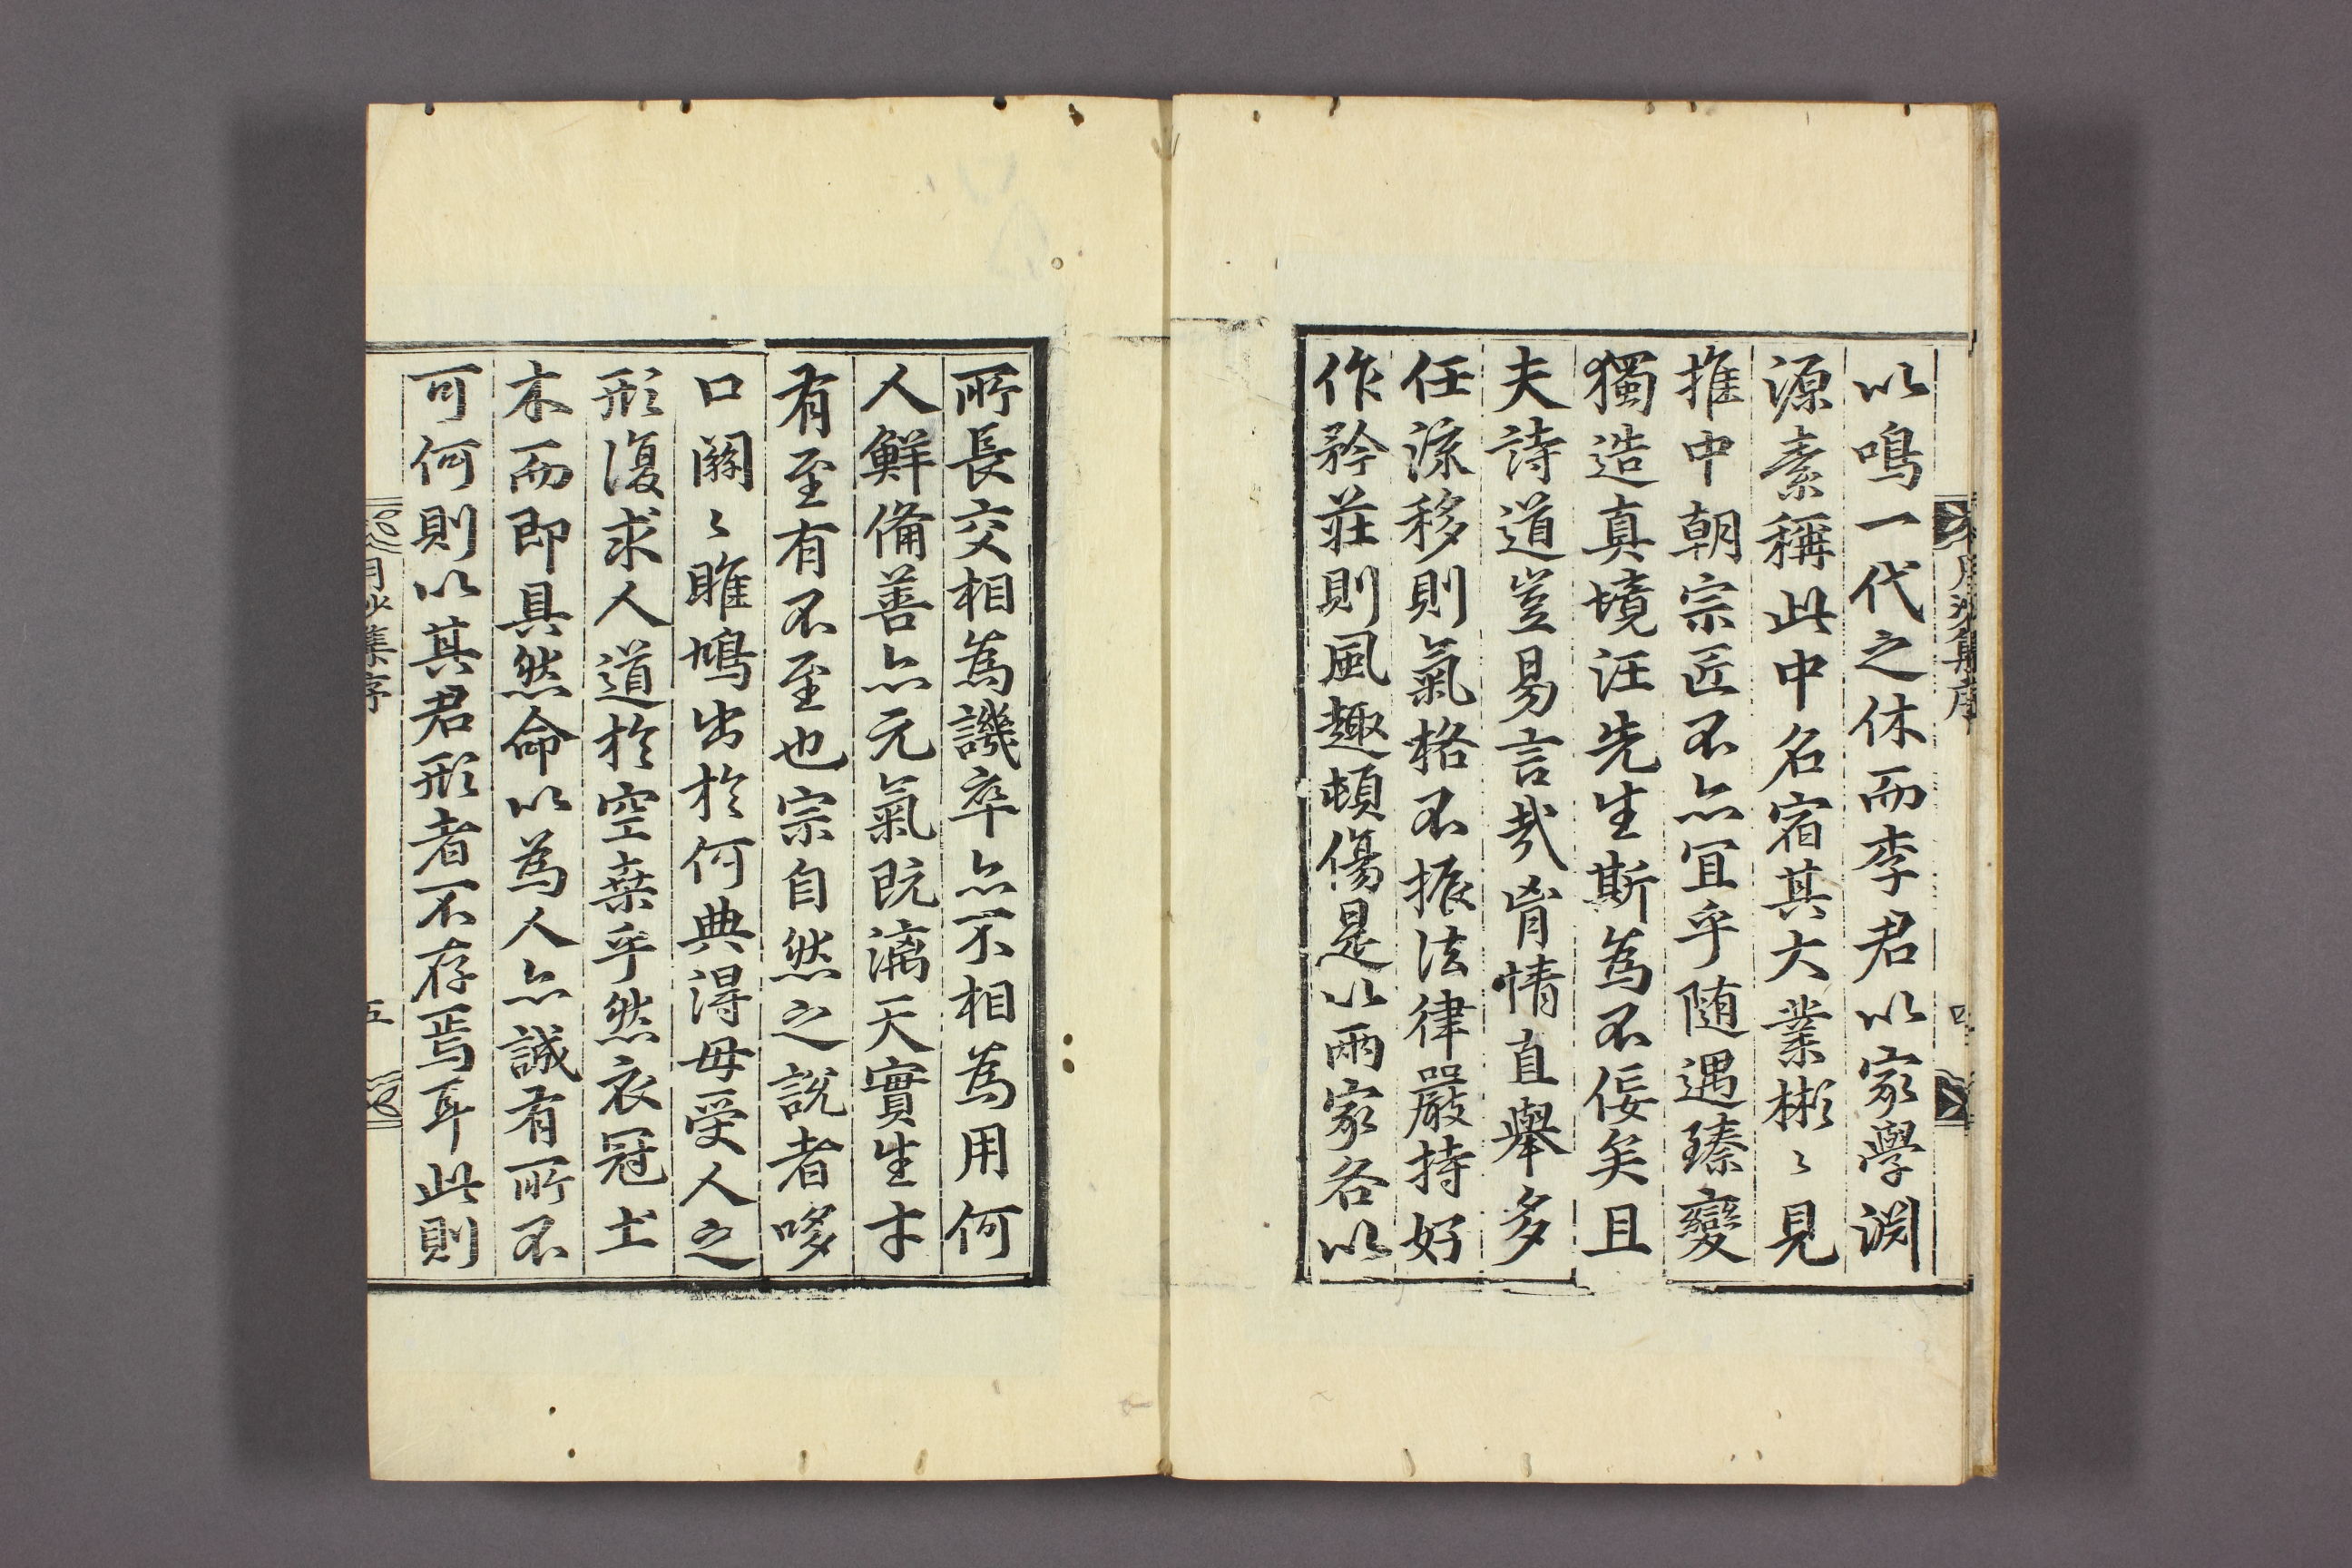 以鳴一代之休而李君以家學淵
源素稱此中名宿其大業彬〻見
推中朝宗匠不亦宜乎随遇臻變
獨造真境汪先生斯為不佞矣且
夫詩道豈易言哉肖情直舉多
任流移則氣格不振法律嚴持好
作矜莊則風趣頓傷是以兩家各以
所長交相為譏卒亦不相為用何
人鮮俻善亦元氣既漓天實生才
有至有不至也宗自然之說者哆
口關〻雎鳩出於何典得毋受人之
形復求人道於空桒乎然衣冠土
木而即具然命以為人亦誠有所不
可何則以其君形者不存焉耳此則
集序
五